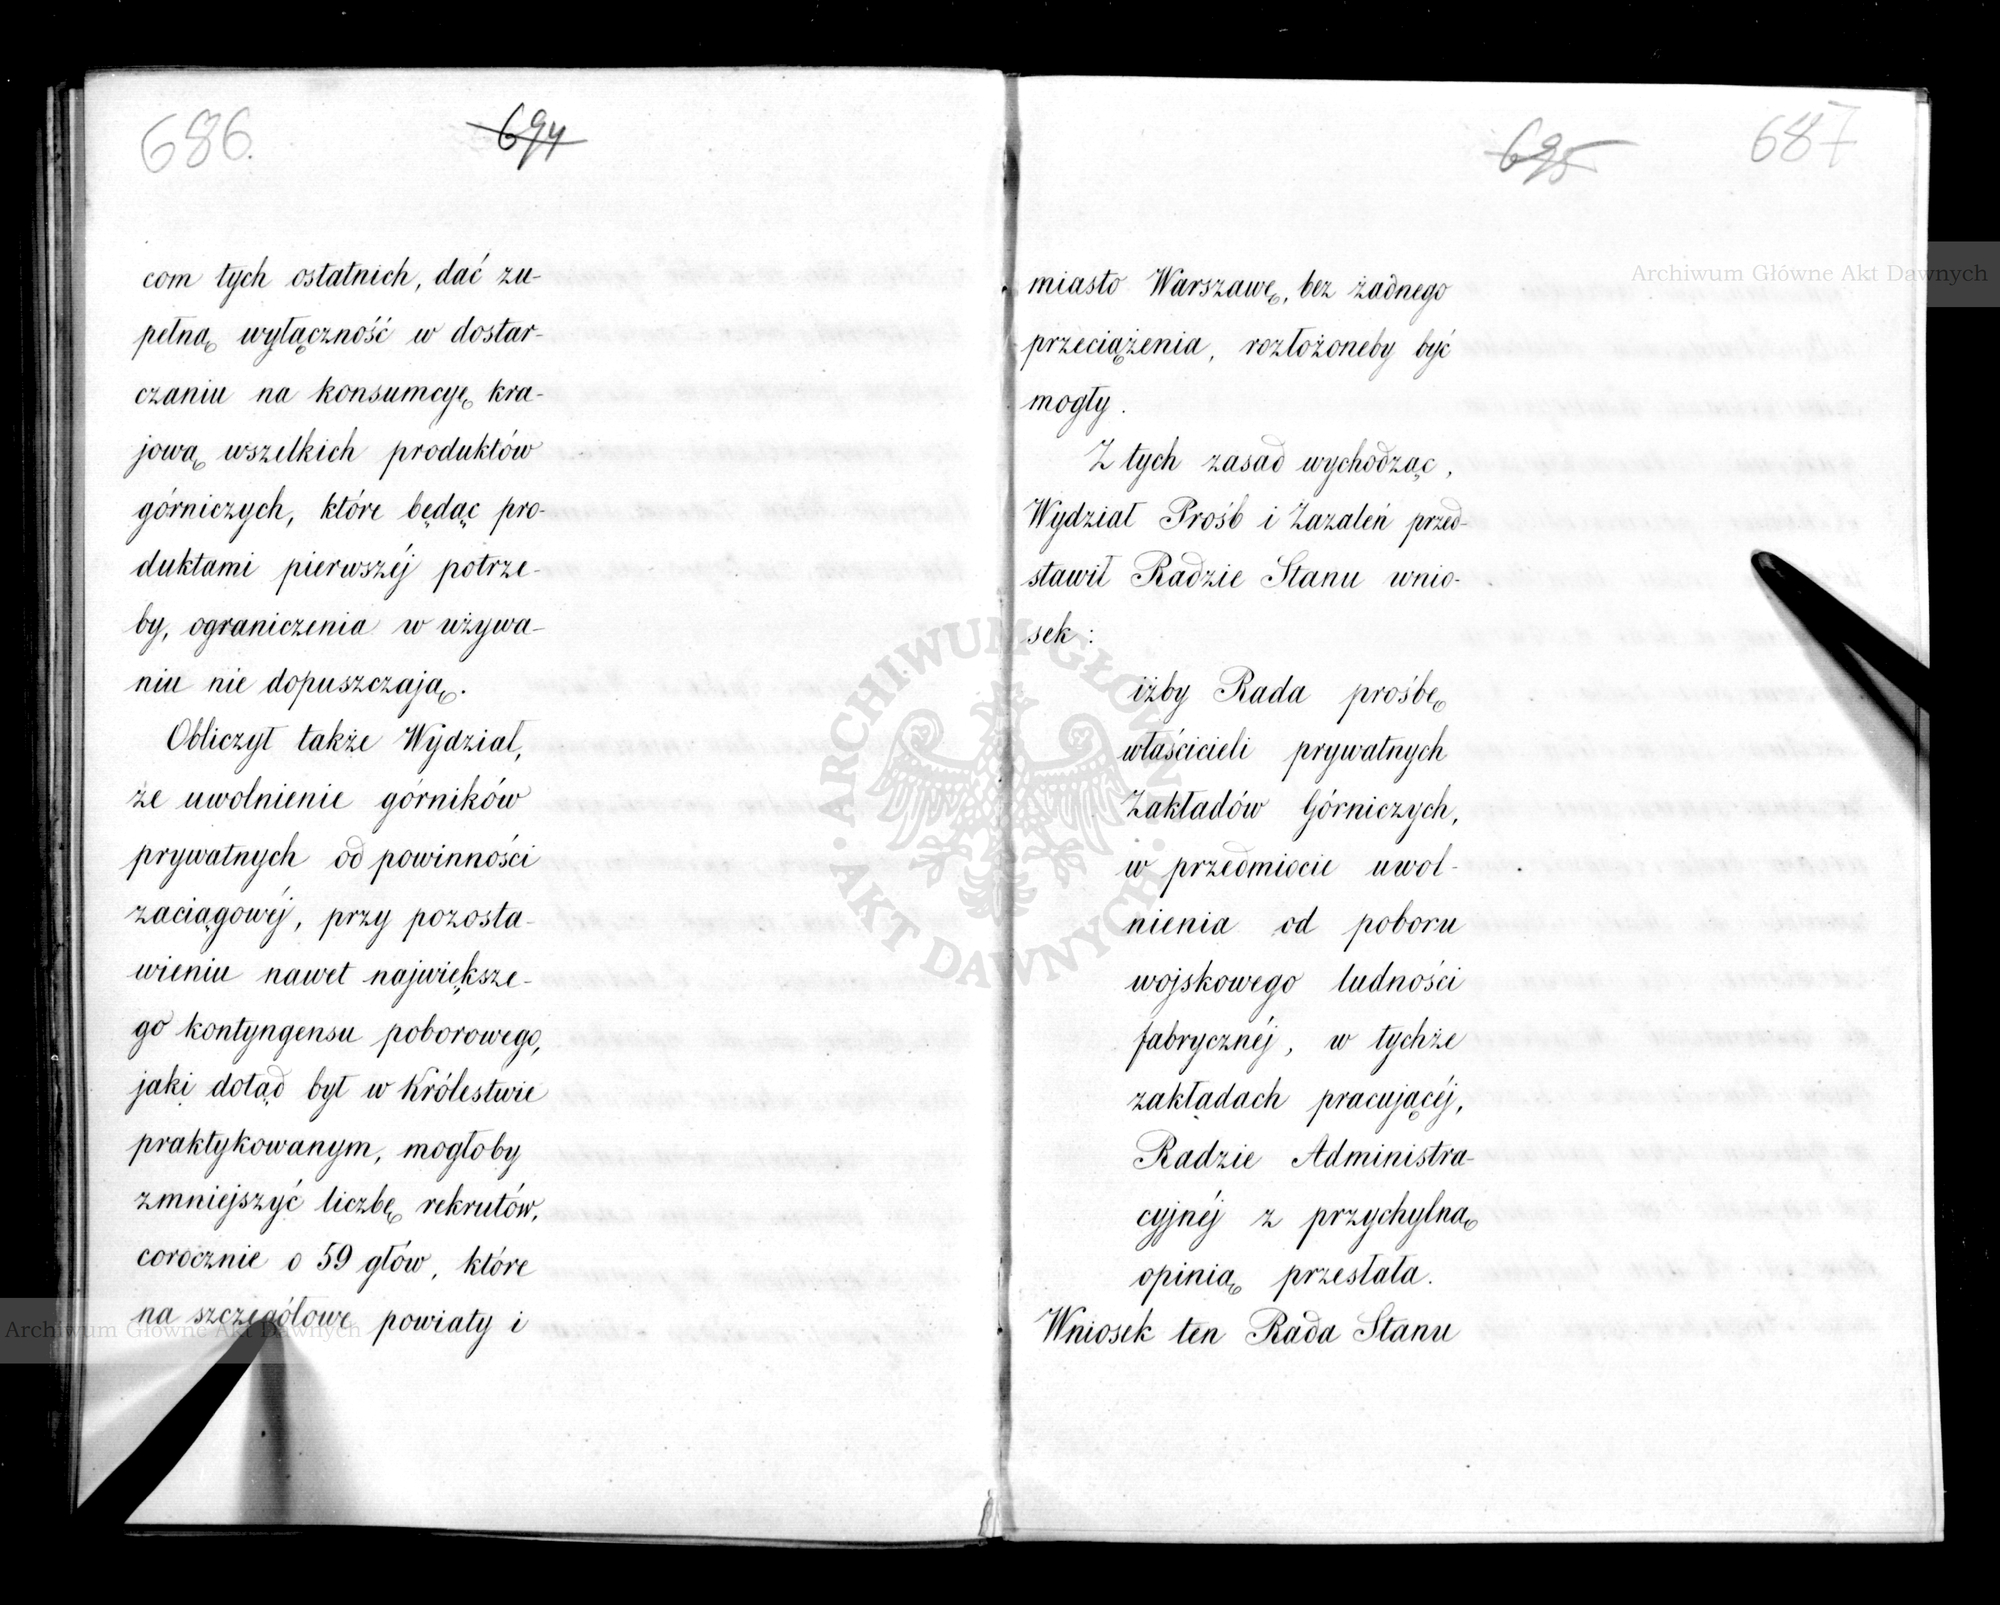 686.
694
com tych ostatnich, dać zu-
pełną wyłączność w dostar-
czaniu na konsumcyę kra-
jową wszelkich produktów
górniczych, które będąc pro-
duktami pierwszéj potrze-
by, ograniczenia w używa-
niu nie dopuszczają.
Obliczył także Wydział,
że uwolnienie górników
prywatnych od powinności
zaciągowéj, przy pozosta-
wieniu nawet największe-
go kontyngensu poborowego,
jaki dotąd był w Królestwie
praktykowanym, mogłoby
zmniejszyć liczbę rekrutów,
corocznie o 59 głów, które
na szczegółowe powiaty i
695
687
miasto Warszawę, bez żadnego
przeciążenia, rozłożoneby być
mogły.
Z tych zasad wychodząc,
Wydział Prośb i Zażaleń przed-
stawił Radzie Stanu wnio-
sek:
iżby Rada prośbę
właścicieli prywatnych
Zakładów Górniczych,
w przedmiocie uwol-
nienia od poboru
wojskowego ludności
fabrycznéj, w tychże
zakładach pracującéj,
Radzie Administra-
cyjnéj z przychylną
opinią przesłała.
Wniosek ten Rada Stanu
Archiwum Główne Akt Dawnych
Archiwum Główne Akt Dawnych
ARCHIWUM GŁÓWNE AKT DAWNYCH